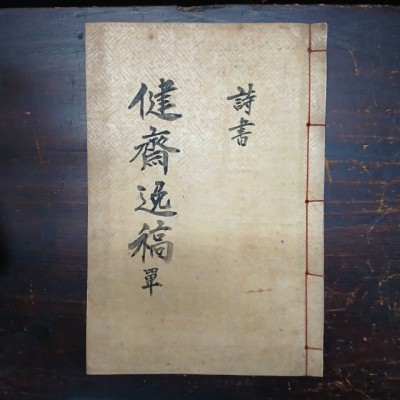 詩書
健齋逸稿單